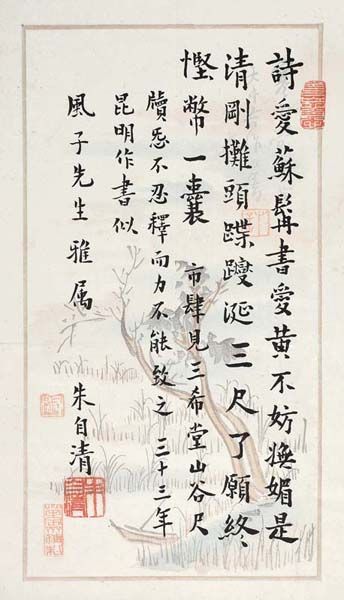 詩愛蘇髯書愛黃不妨嫵媚是
清剛攤頭蹀躞涎三尺了願終
慳幣一囊 市肆見三希堂山谷尺
牘㤅不忍釋而力不能致之 三十三年
昆明作書似
風子先生雅属 朱自清